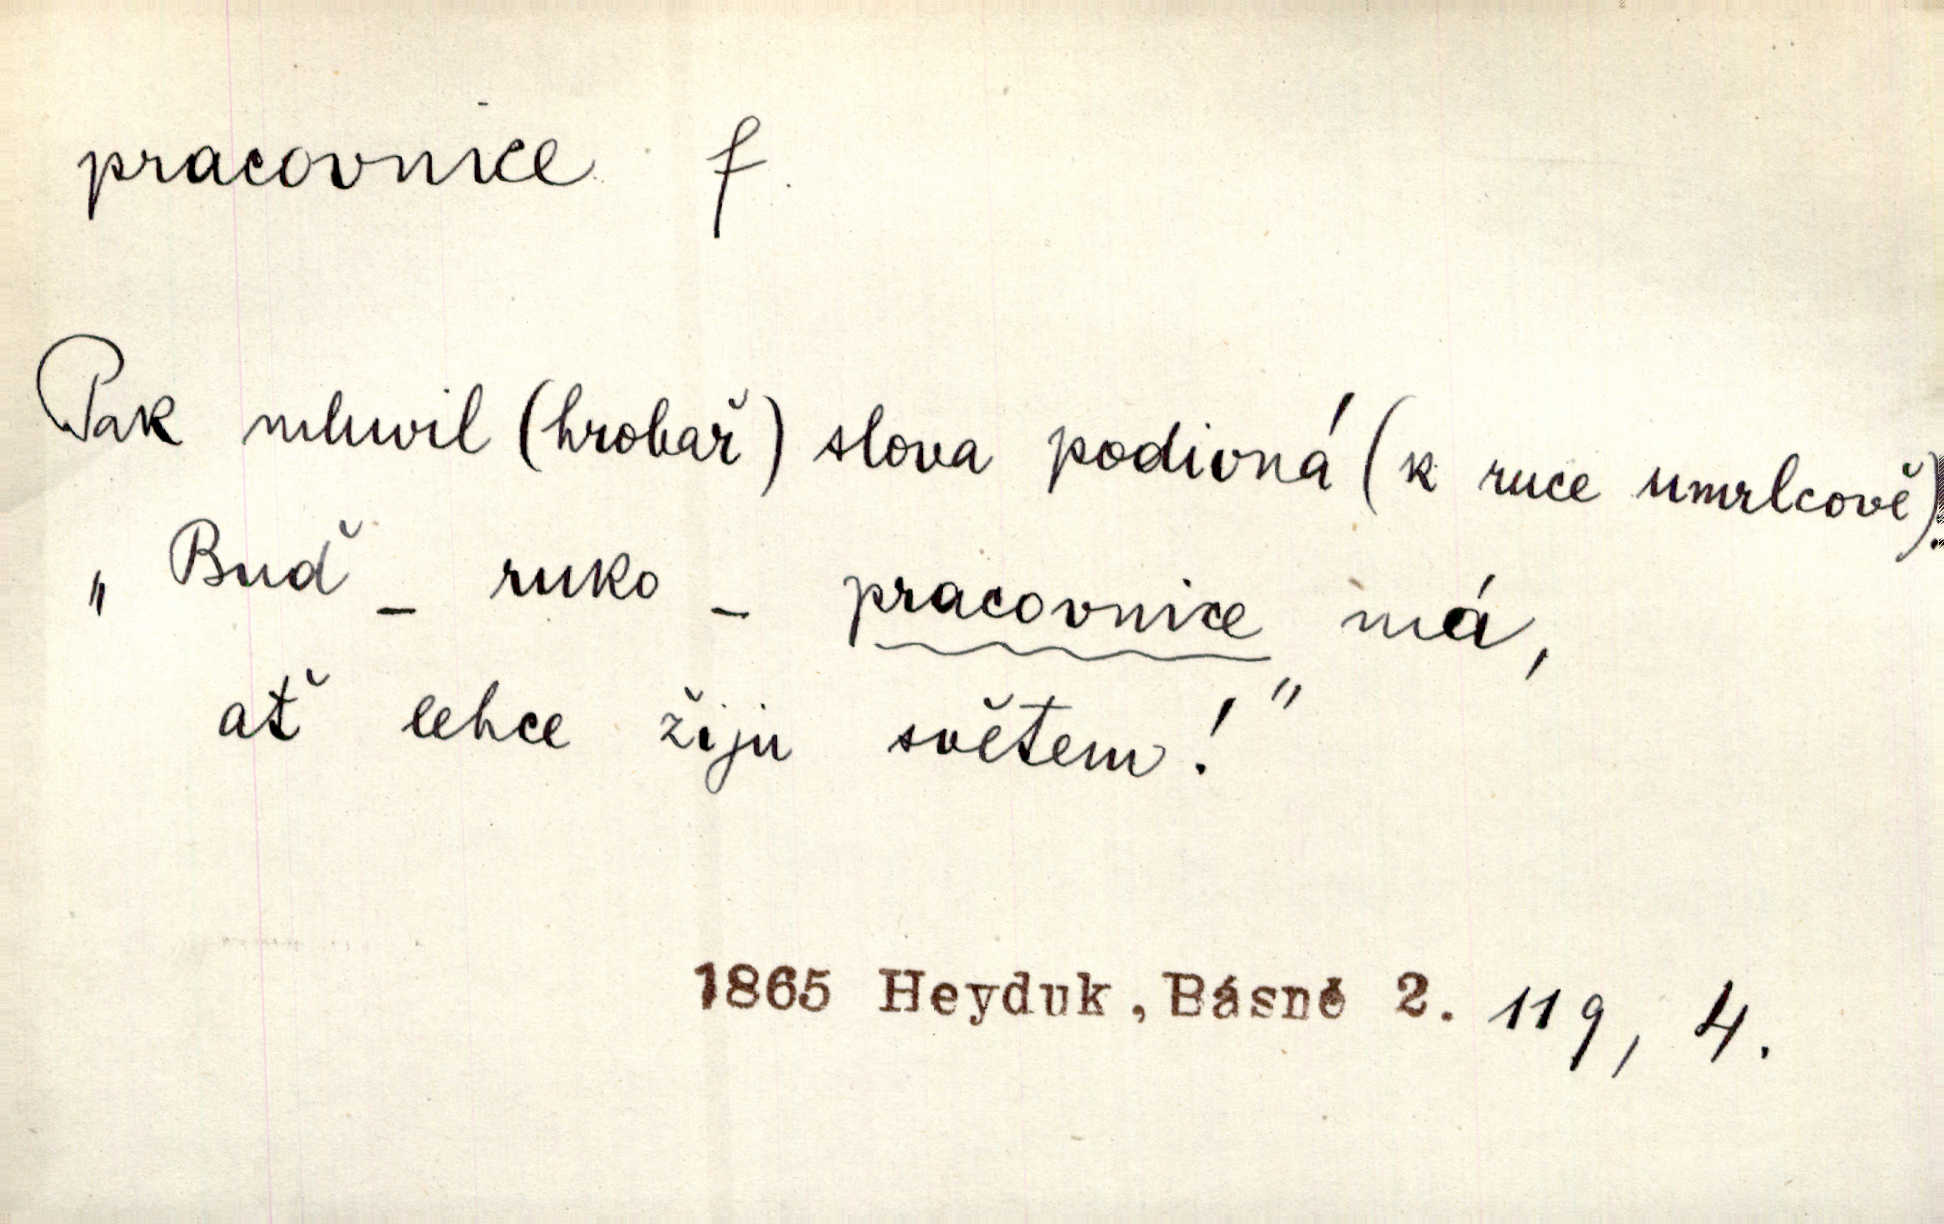 pracovnice f.
Pak mluvil (hrobař) slova podivná (k ruce umrlcově):
„Buď – ruko – pracovnice má,
ať lehce žiju světem!"
1865 Heyduk, Básně 2. 119, 4.